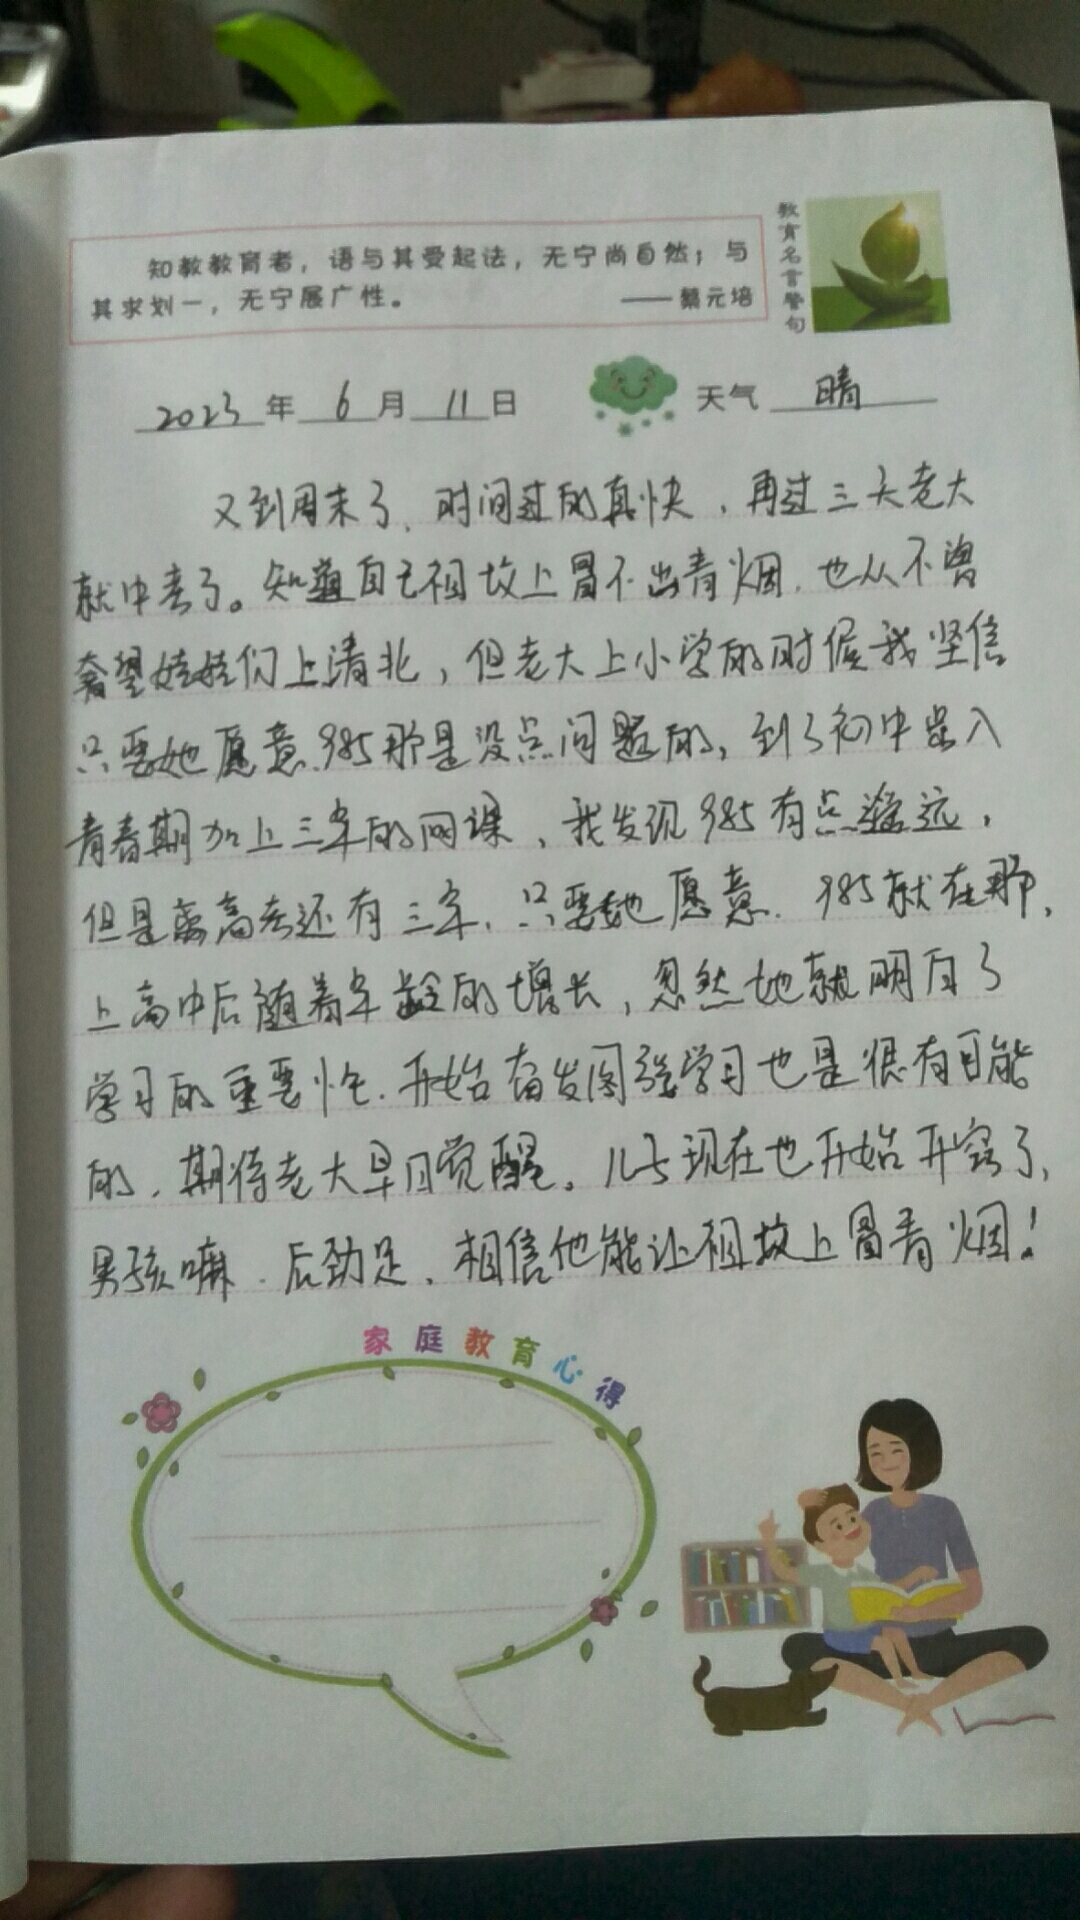 知教教育者，语与其受起法，无宁尚自然；与
其求划一，无宁展广性。 ——蔡元培
教育名言警句
2023年6月11日 天气 晴
又到周末了、时间过的真快，再过三天老大
就中考了。知道自己祖坟上冒不出青烟，也从不曾
奢望娃娃们上清北，但老大上小学的时候我坚信
只要她愿意、985那是没点问题的，到了初中步入
青春期加上三年的网课、我发现985有点遥远，
但是离高考还有三年、只要她愿意、985就在那、
上高中后随着年龄的增长，忽然她就明白了
学习的重要性、开始奋发图强学习也是很有可能
的，期待老大早日觉醒。儿子现在也开始开窍了、
男孩嘛、后劲足、相信他能让祖坟上冒青烟！
家庭教育心得